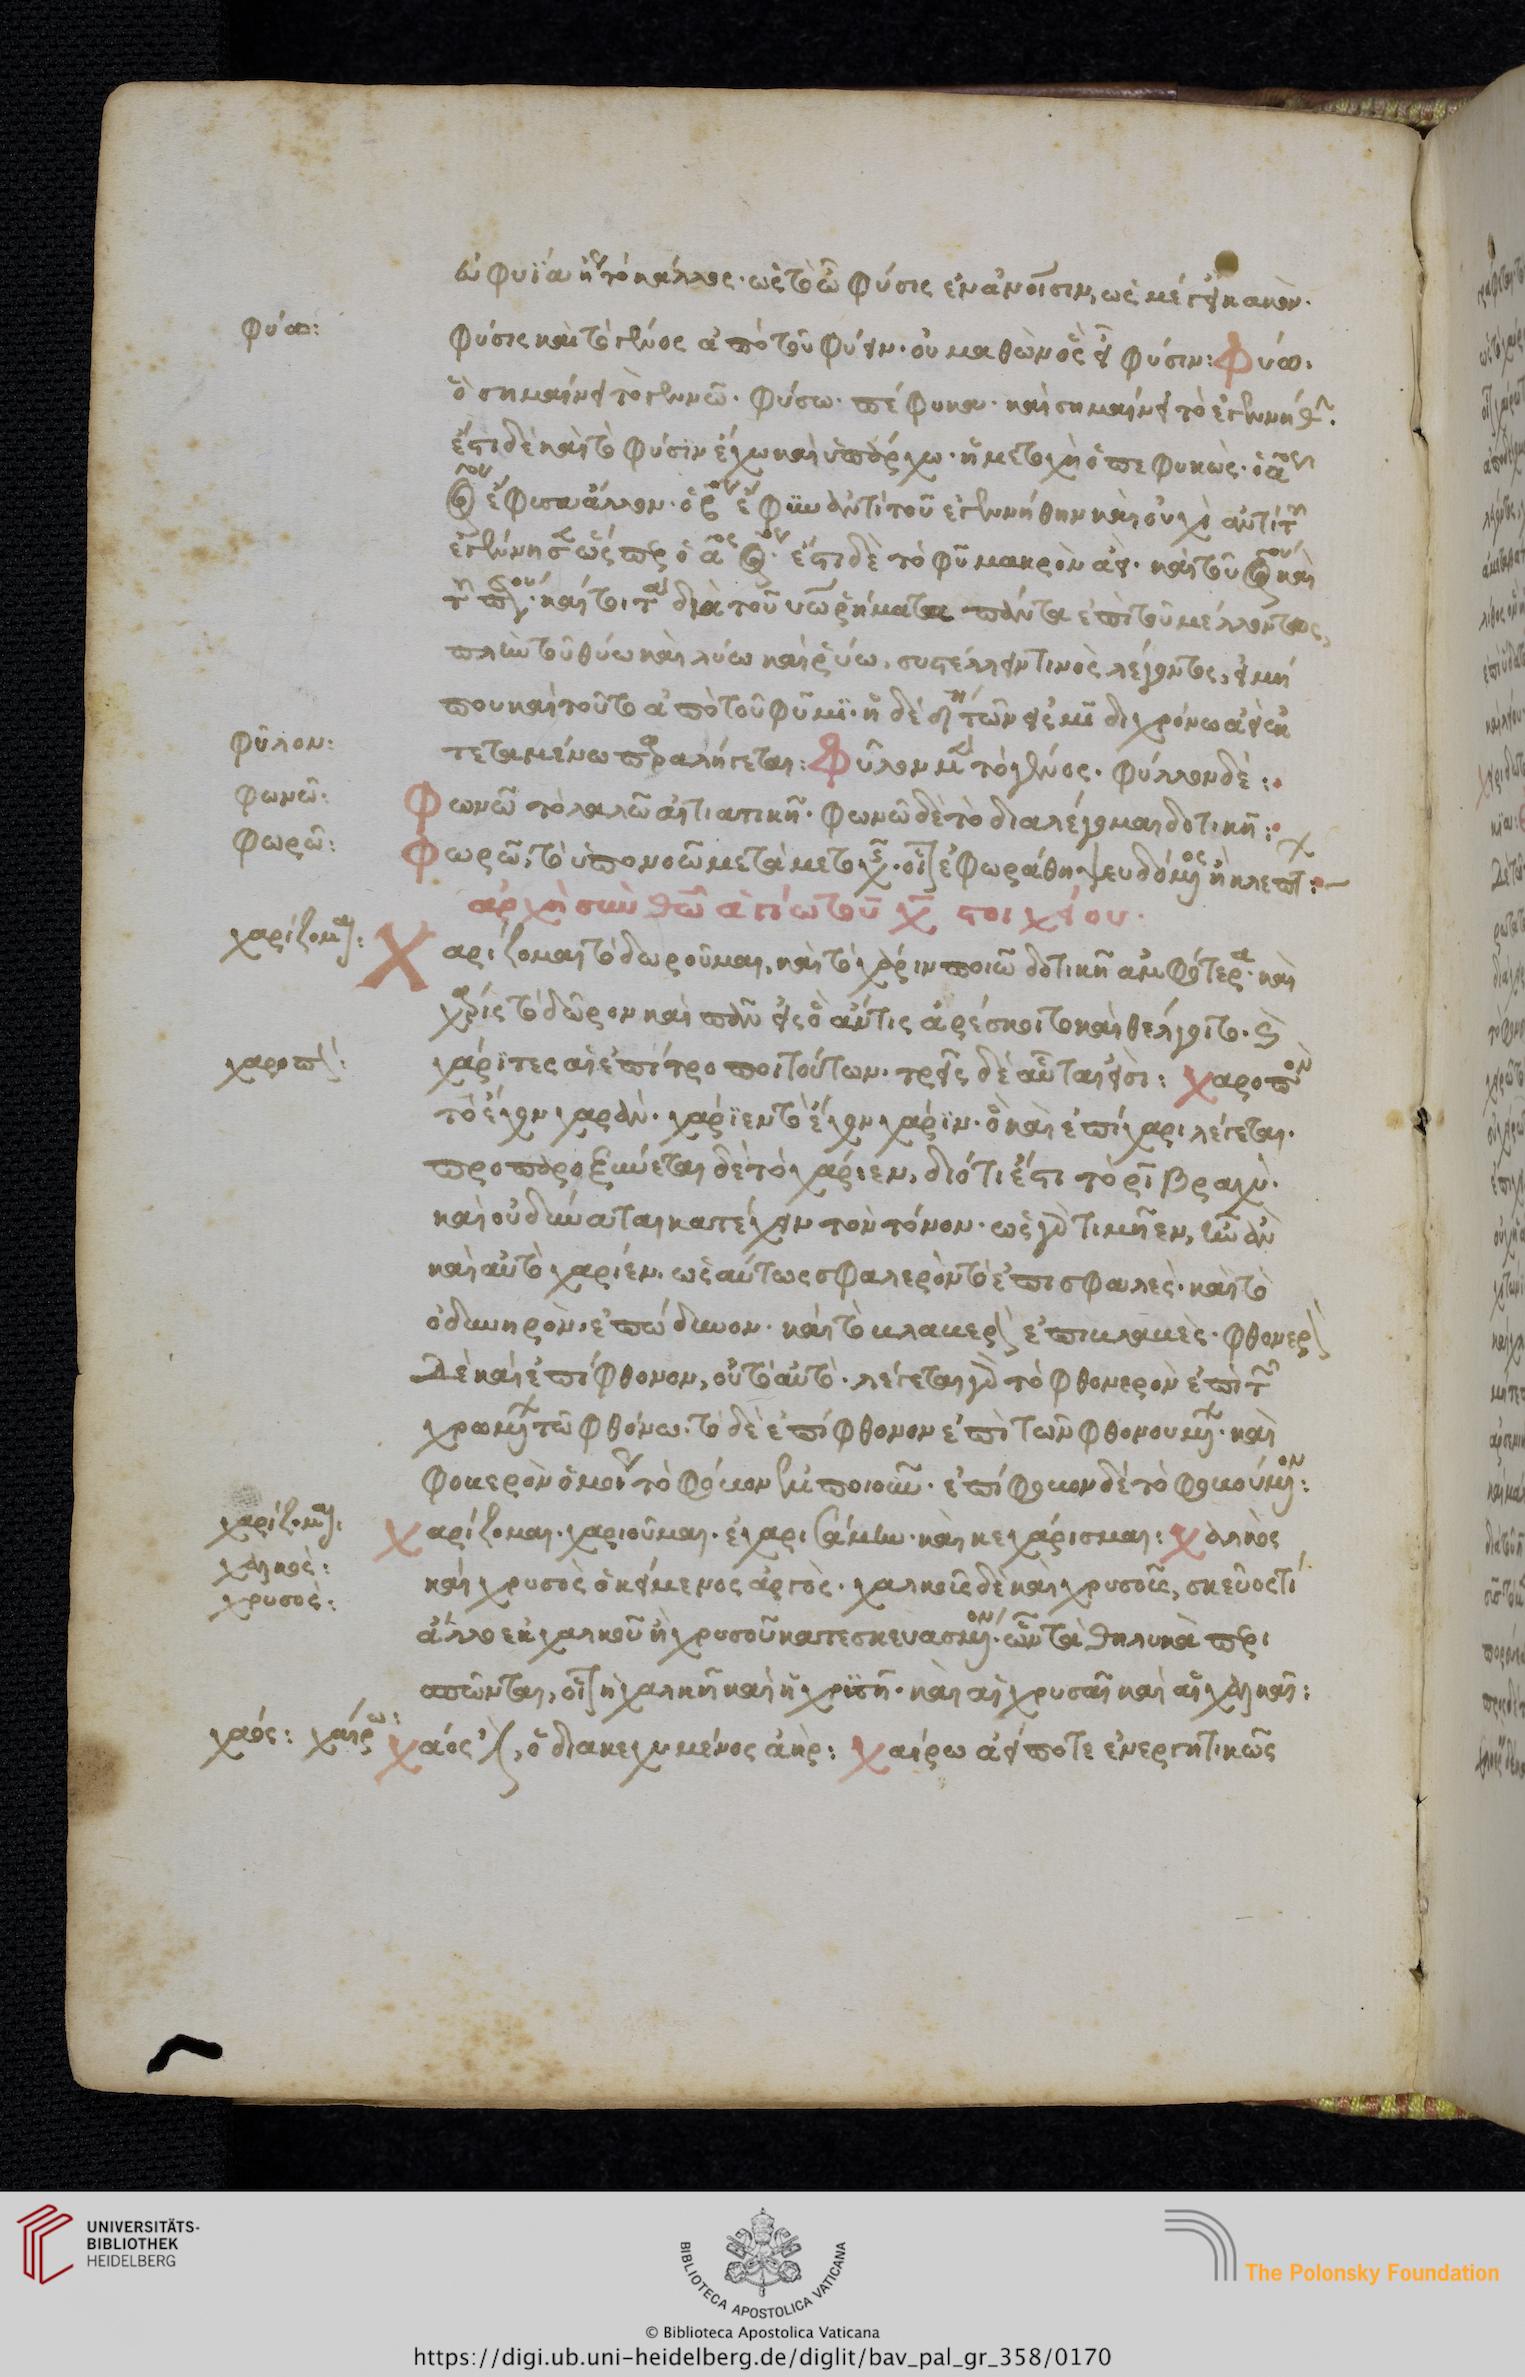 εὐφυΐα ἢ τὸ κάλλος· ὡς τὸ φύσις ἐν ἀνοίσιν, ὡς μέγα κακόν·
φύω:
φύσις καὶ τὸ γένος ἀπὸ τοῦ φύειν· οὐ μαθὼν φύσιν: Φύω·
ὃ σημαίνει τὸ γεννῶ· φύσω· πέφυκα· καὶ σημαίνει τὸ ἐγεννήθην·
ἔστι δὲ καὶ τὸ φύσιν ἔχω καὶ ὑπάρχω· ἡ μετοχὴ ὁ πεφυκώς·
ἔφυν ἀντὶ τοῦ ἐγεννήθην καὶ οὐχὶ ἀντὶ τοῦ
ἐγέννησα ὥσπερ ὁ ἔστι δὲ τὸ φῦ μακρὸν ἀεί· καὶ τοῦ καὶ
καὶ τὰ διὰ τοῦ υω ῥήματα πάντα ἐπὶ τοῦ μέλλοντος,
πλὴν τοῦ θύω καὶ λύω καὶ ῥύω, συστέλλειν τινὸς λέγοντος, εἰ μή
που καὶ τοῦτο ἀπὸ τοῦ φῦμι· ἡ δὲ τῶν εἰς μι διχρόνω ἀεὶ
φῦλον:
τεταμένω παραλήγεται: Φῦλον μὲν τὸ γένος· φύλλον δέ:
φωνῶ:
Φωνῶ τὸ λαλῶ αἰτιατικῇ· φωνῶ δὲ τὸ διαλέγομαι δοτικῇ:
φωρῶ:
Φωρῶ, τὸ ὑπονοῶ μετὰ μετοχῆς· οἷον ἐφωράθη ψευδόμενος ἢ κλέπτων:
ἀρχὴ σὺν θεῷ ἁγίῳ τοῦ χ στοιχείου·
χαρίζομαι:
Χαρίζομαι τὸ δωροῦμαι, καὶ τὸ χάριν ποιῶ δοτικῇ ἀμφότερα· καὶ
χάρις τὸ δῶρον καὶ πᾶν εἰς ὃ ἄν τις ἀρέσκοιτο καὶ θέλγοιτο·
χαροπόν:
χάριτες αἱ ἐπίτροποι τούτων· τρεῖς δὲ αὗται εἰσί: χαροπὸν
τὸ ἔχον χαράν· χαρίεν τὸ ἔχον χάριν· ὃ καὶ ἐπίχαρι λέγεται·
προπαροξύνεται δὲ τὸ χάριεν, διότι ἔστι τὸ ρι βραχύ·
καὶ οὐ δύναται κατέχειν τὸν τόνον· ὡς γὰρ τιμῆεν, ἦν ἂν
καὶ αὐτὸ χαριέν, ὡσαύτως σφαλερὸν τὸ ἐπισφαλές· καὶ τὸ
ὀδυνηρόν, ἐπώδυνον· καὶ τὸ ἐπικλακές· φθονερὸν
δὲ καὶ ἐπίφθονον, οὐ τὸ αὐτό· λέγεται γὰρ τὸ φθονερὸν ἐπὶ τῶν
χρωμένων τῷ φθόνῳ· τὸ δὲ ἐπίφθονον ἐπὶ τῶν φθονουμένων· καὶ
ἐπίψογον δὲ τὸ
χαρίζομαι:
χαρίζομαι· χαριοῦμαι· ἐχαρισάμην· καὶ κεχάρισμαι: χαλκὸς
χαλκός:
καὶ χρυσὸς ὁ κείμενος ἀργός· χαλκοῦς δὲ καὶ χρυσοῦς, σκεῦος τί
χρυσός:
ἄλλο ἐκ χαλκοῦ ἢ χρυσοῦ κατεσκευασμένον· ὧν τὰ θηλυκὰ περι
σπῶνται, οἷον ἡ χαλκῆ καὶ ἡ χρυσῆ· καὶ αἱ χρυσαῖ καὶ αἱ χαλκαῖ:
χάος: χαίρω:
χάος, ὁ διακεχυμένος ἀήρ: χαίρω ἀεί ποτε ἐνεργητικῶς
UNIVERSITÄTS-
BIBLIOTHEK
HEIDELBERG
BIBLIOTECA APOSTOLICA VATICANA
The Polonsky Foundation
© Biblioteca Apostolica Vaticana
https://digi.ub.uni-heidelberg.de/diglit/bav_pal_gr_358/0170